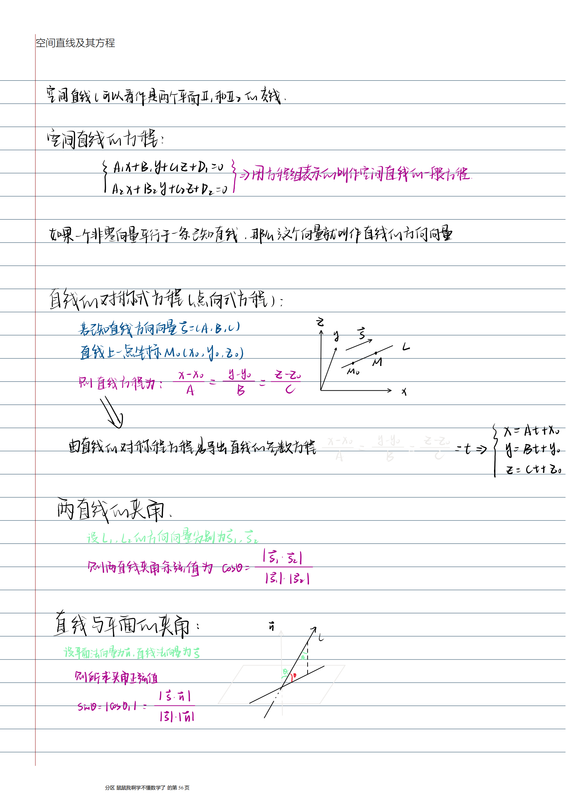 空间直线及其方程
空间直线L可以看作是两个平面Π₁和Π₂的交线.
空间直线的方程:
{ A₁x+B₁y+C₁z+D₁=0
A₂x+B₂y+C₂z+D₂=0 } ⇒用方程组表示的叫作空间直线的一般方程
如果一个非零向量平行于一条已知直线.那么这个向量就叫作直线的方向向量
直线的对称式方程(点向式方程):
若已知直线方向向量s⃗=(A.B.C)
直线上一点坐标M₀(x₀,y₀,z₀)
则直线方程为: (x-x₀)/A = (y-y₀)/B = (z-z₀)/C
z y s⃗ L M₀ M x
由直线的对称式方程易导出直线的参数方程 (x-x₀)/A = (y-y₀)/B = (z-z₀)/C =t ⇒ { x=At+x₀
y=Bt+y₀
z=Ct+z₀
两直线的夹角.
设L₁.L₂的方向向量分别为s⃗₁.s⃗₂
则两直线夹角余弦值为 cosθ= |s⃗₁·s⃗₂| / |s⃗₁|·|s⃗₂|
直线与平面的夹角:
设平面法向量为n⃗.直线方向量为s⃗
则所求夹角正弦值
sinθ=|cosθ₁| = |s⃗·n⃗| / |s⃗|·|n⃗|
n⃗ L θ₁ θ
分区 鼠鼠我啊学不懂数学了 的第 16 页